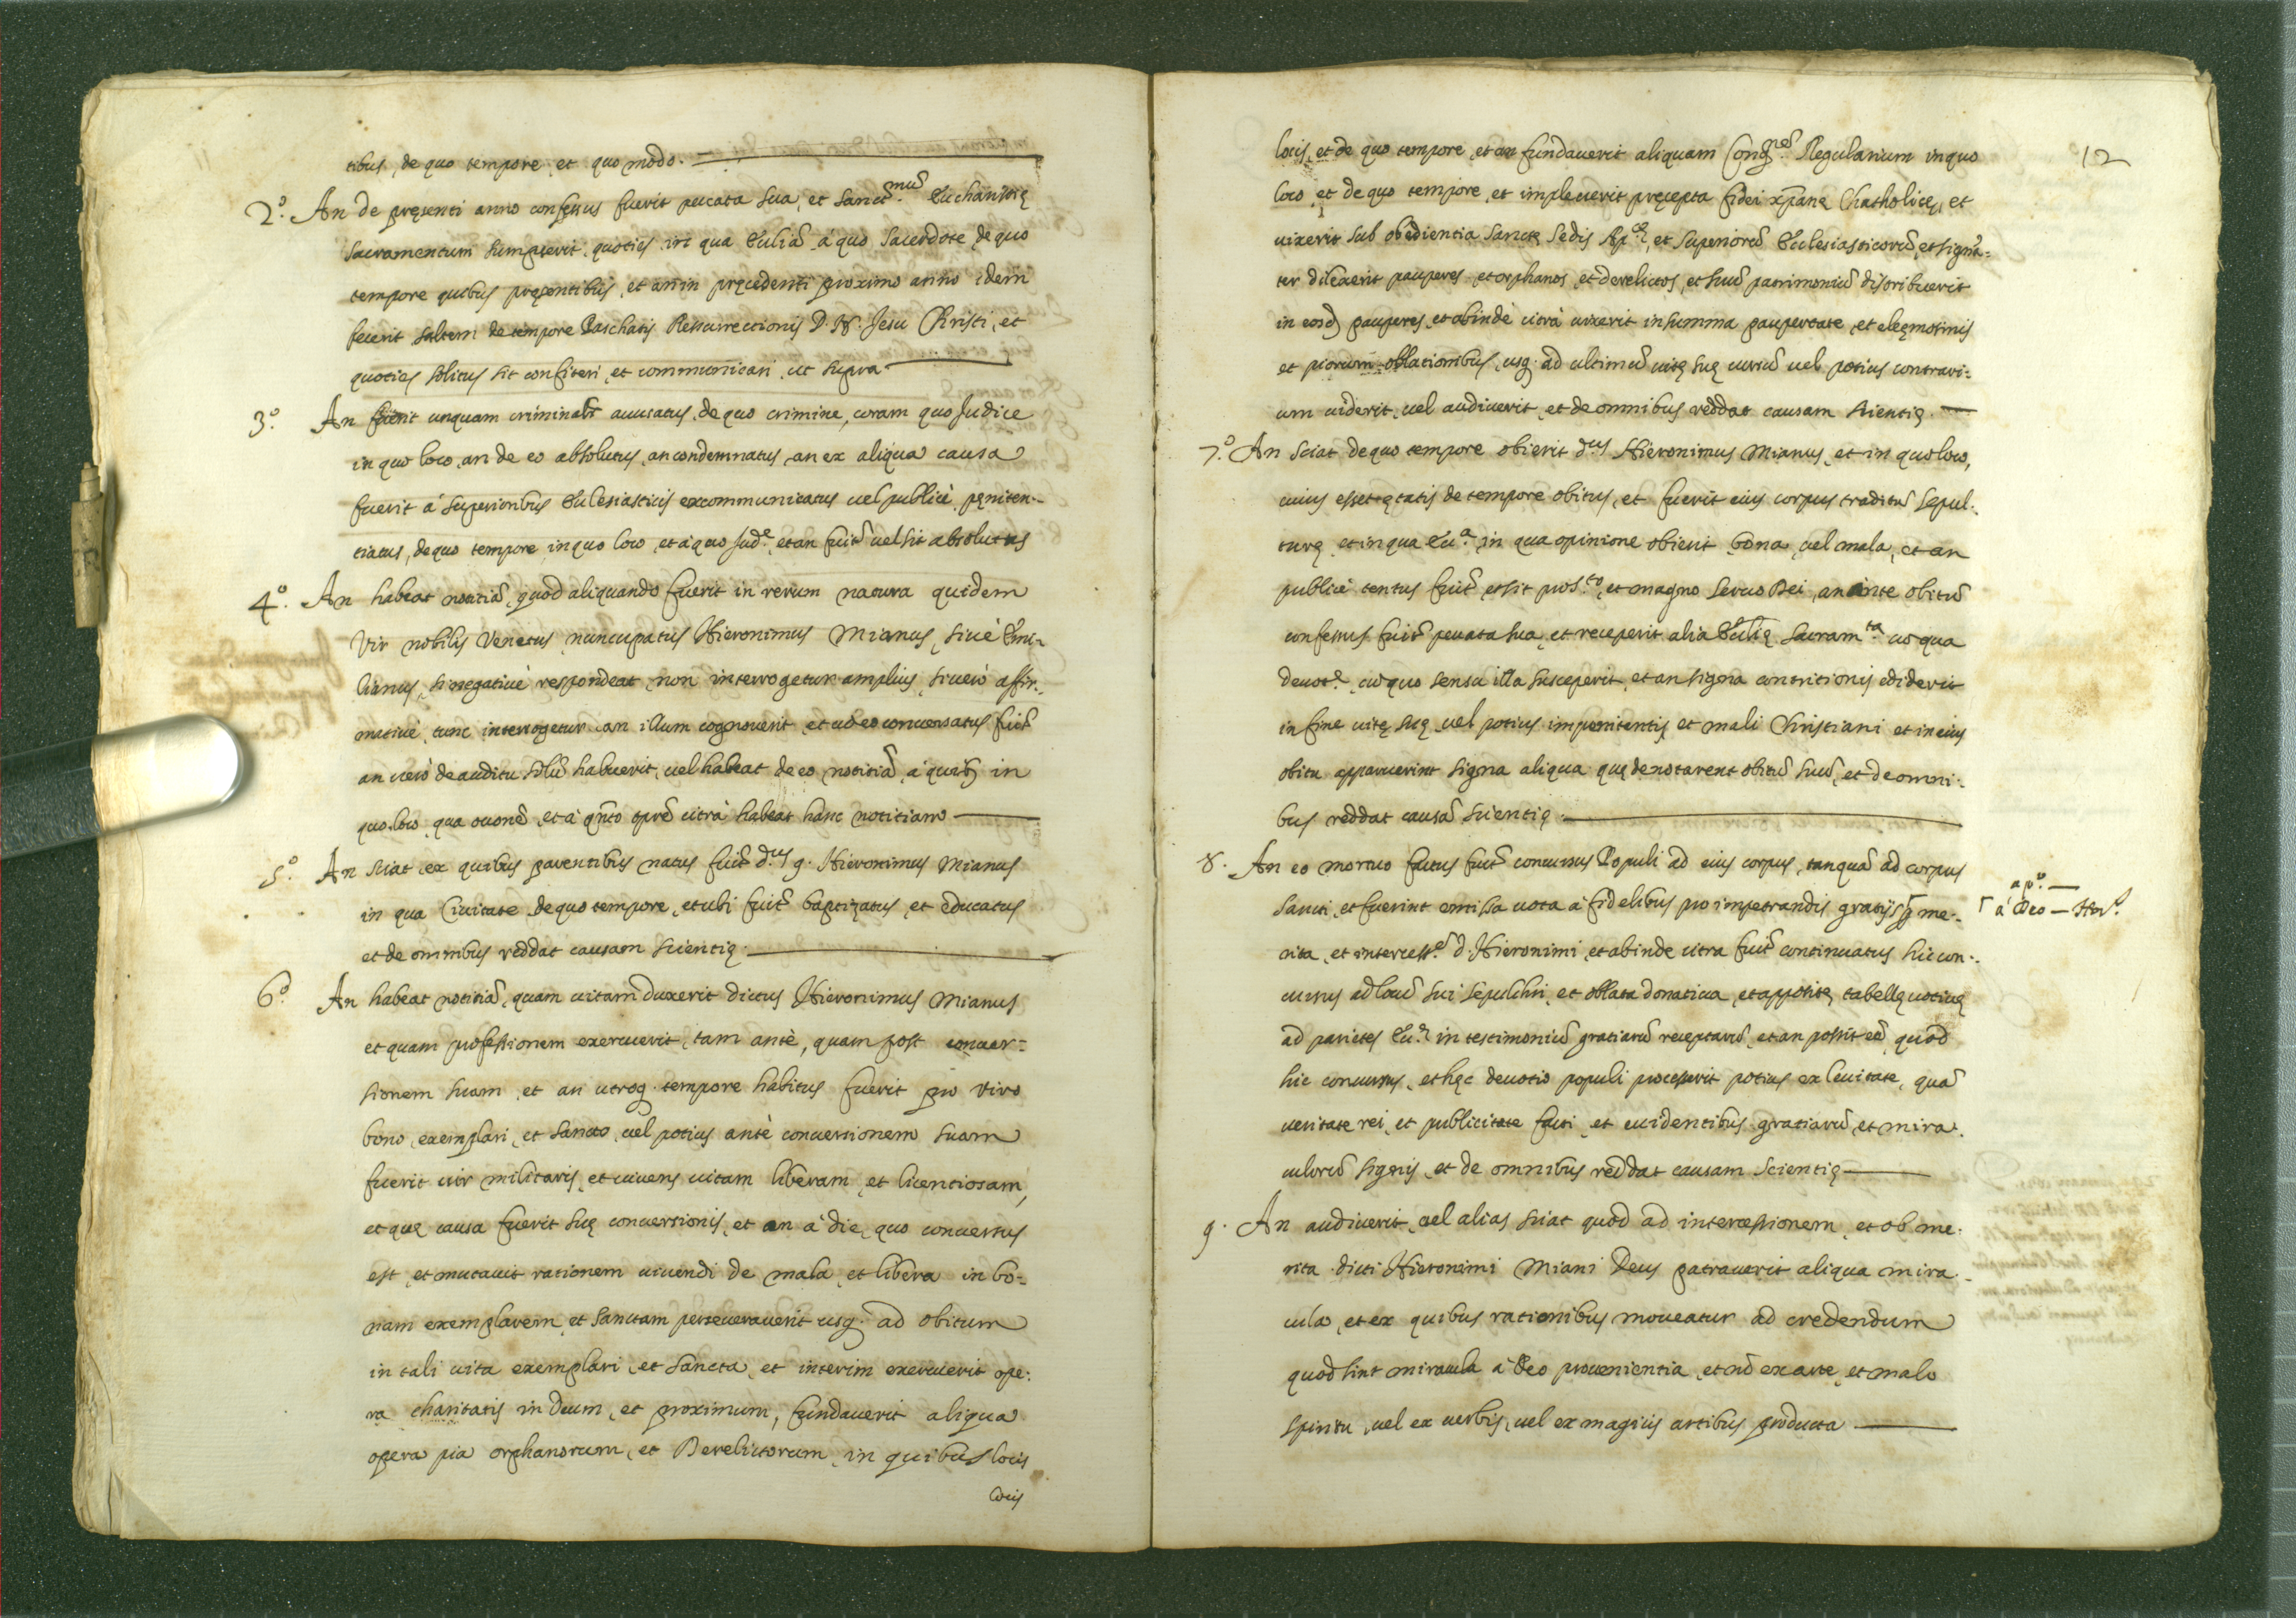 tibus, de quo tempore, et quo modo.
2.º An de pręsenti anno confessus fuerit peccata sua, et Sanct.mũ Euchanistię
Sacramentum sumpserit quoties in qua Ecclĩa à quo Sacerdote de quo
tempore quibus pręsentibus, et an in pręcedenti proximo anno idem
fecerit saltem de tempore Paschatis Ressurrectionis D. N. Jesu Christi, et
quoties solitus sit confiteri, et communicari, ut supra
3.º An fuerit unquam criminalr̃ accusatus, de quo crimine, coram quo Judice
in quo loco, an de eo absolutus, an condemnatus, an ex aliqua causa
fuerit à superioribus Ecclesiasticis excommunicatus vel publicè pęniten-
tiatus, de quo tempore in quo loco et à quo Jud.e et an fuit̃ vel sit absolutus
4.º An habeat notitiã, quod aliquando fuerit in rerum natura quidem
Vir nobilis Venetus nuncupatus Hieronimus Mianus, sivè Emi-
lianus, si negativè respondeat, non interrogetur amplius, si verò affir-
mativè, tunc interrogetur an illum cognoverit, et cũ eo conversatus fuit̃
an verò de auditu solũ habuerit, vel habeat de eo notitiã, à quib9 in
quo loco, qua occonẽ, et à qñto tprẽ citrà habeat hanc notitiam
5.º An sciat ex quibus parentibus natus fuit̃ d.us q. Hieronimus Mianus
in qua Civitate, de quo tempore, et ubi fuit̃ baptizatus, et educatus
et de omnibus reddat causam scientię.
6.º An habeat notitiã, quam vitam duxerit dictus Hieronimus Mianus
et quam professionem exercuerit, tam antè, quam post conver-
sionem suam, et an utroq. tempore habitus fuerit pro viro
bono, exemplari, et sancto, vel potius antè conversionem suam
fuerit vir militaris, et vivens vitam liberam, et licentiosam,
et quę causa fuerit suę conversionis, et an à die, quo conversus
est, et mutavit rationem vivendi de mala, et libera in bo-
nam exemplarem, et sanctam perseveraverit usq. ad obitum
in tali vita exemplari, et sancta, et interim exercuerit ope-
ra charitatis in Deum, et proximum, fundaverit aliqua
opera pia orphanorum, et Derelictorum, in quibus locis
locis
12
locis, et de quo tempore, et an fundaverit aliquam Cong.nẽ Regularium in quo
loco, et de quo tempore, et impleverit pręcepta fidei xp̃anę Chatholicę, et
vixerit sub obedientia sanctę Sedis Ap.cę, et Superiorũ Ecclesiasticorũ, et signã-
ter dilexerit pauperes, et orphanos, et derelictos, et suũ patrimoniũ distribuerit
in eosd. pauperes, et abindè citrà vixerit in summa paupertate, et elęmosinis
et piorum oblationibus, usq. ad ultimũ vitę suę cursũ vel potius contrari-
um viderit, vel audiverit, et de omnibus reddat causam scientię.
7.º An sciat de quo tempore obierit d.us Hieronimus Mianus, et in quo loco,
cuius esset ętatis de tempore obitus, et fuerit eius corpus traditũ sepul-
turę, et in qua Ecc.a, in qua opinione obierit bona, vel mala, et an
publicè tentus fuit̃, et sit pro S.to, et magno servo Dei, an ante obitũ
confessus fuit̃ peccata sua, et receperit alia Ecclĩę Sacram.ta cũ qua
devot.e, cũ quo sensu illa susceperit, et an signa contritionis ediderit
in fine vitę suę, vel potius impenitentis, et mali Christiani et in eius
obitu apparuerint signa aliqua quę denotarent obitũ suũ, et de omni-
bus reddat causã scientię.
8. An eo mortuo factus fuit̃ concursus Populi ad eius corpus, tanquã ad corpus
Sancti, et fuerint emissa vota à fidelibus pro impetrandis gratijs p me-
rita, et intercess.ẽ d. Hieronimi, et abinde citra fuit̃ continuatus hic con-
cursus ad locũ sui sepulchri, et oblata donativa, et appositę tabellę votivę
ad parietes Ecc.ę in testimoniũ gratiarũ receptarũ, et an possit eẽ, quod
hic concursus, et hęc devotio populi processerit potius ex levitate, quã
veritate rei, et publicitate facti, et evidentibus gratiarũ, et mira-
culorũ signis, et de omnibus reddat causam scientię
ap.º
à Deo
9. An audiverit, vel alias sciat quod ad intercessionem, et ob me-
rita dicti Hieronimi Miani Deus patraverit aliqua mira-
cula, et ex quibus rationibus moveatur ad credendum
quod sint miracula à Deo provenientia, et nõ ex arte, et malo
spiritu, vel ex verbis, vel ex magicis artibus producta